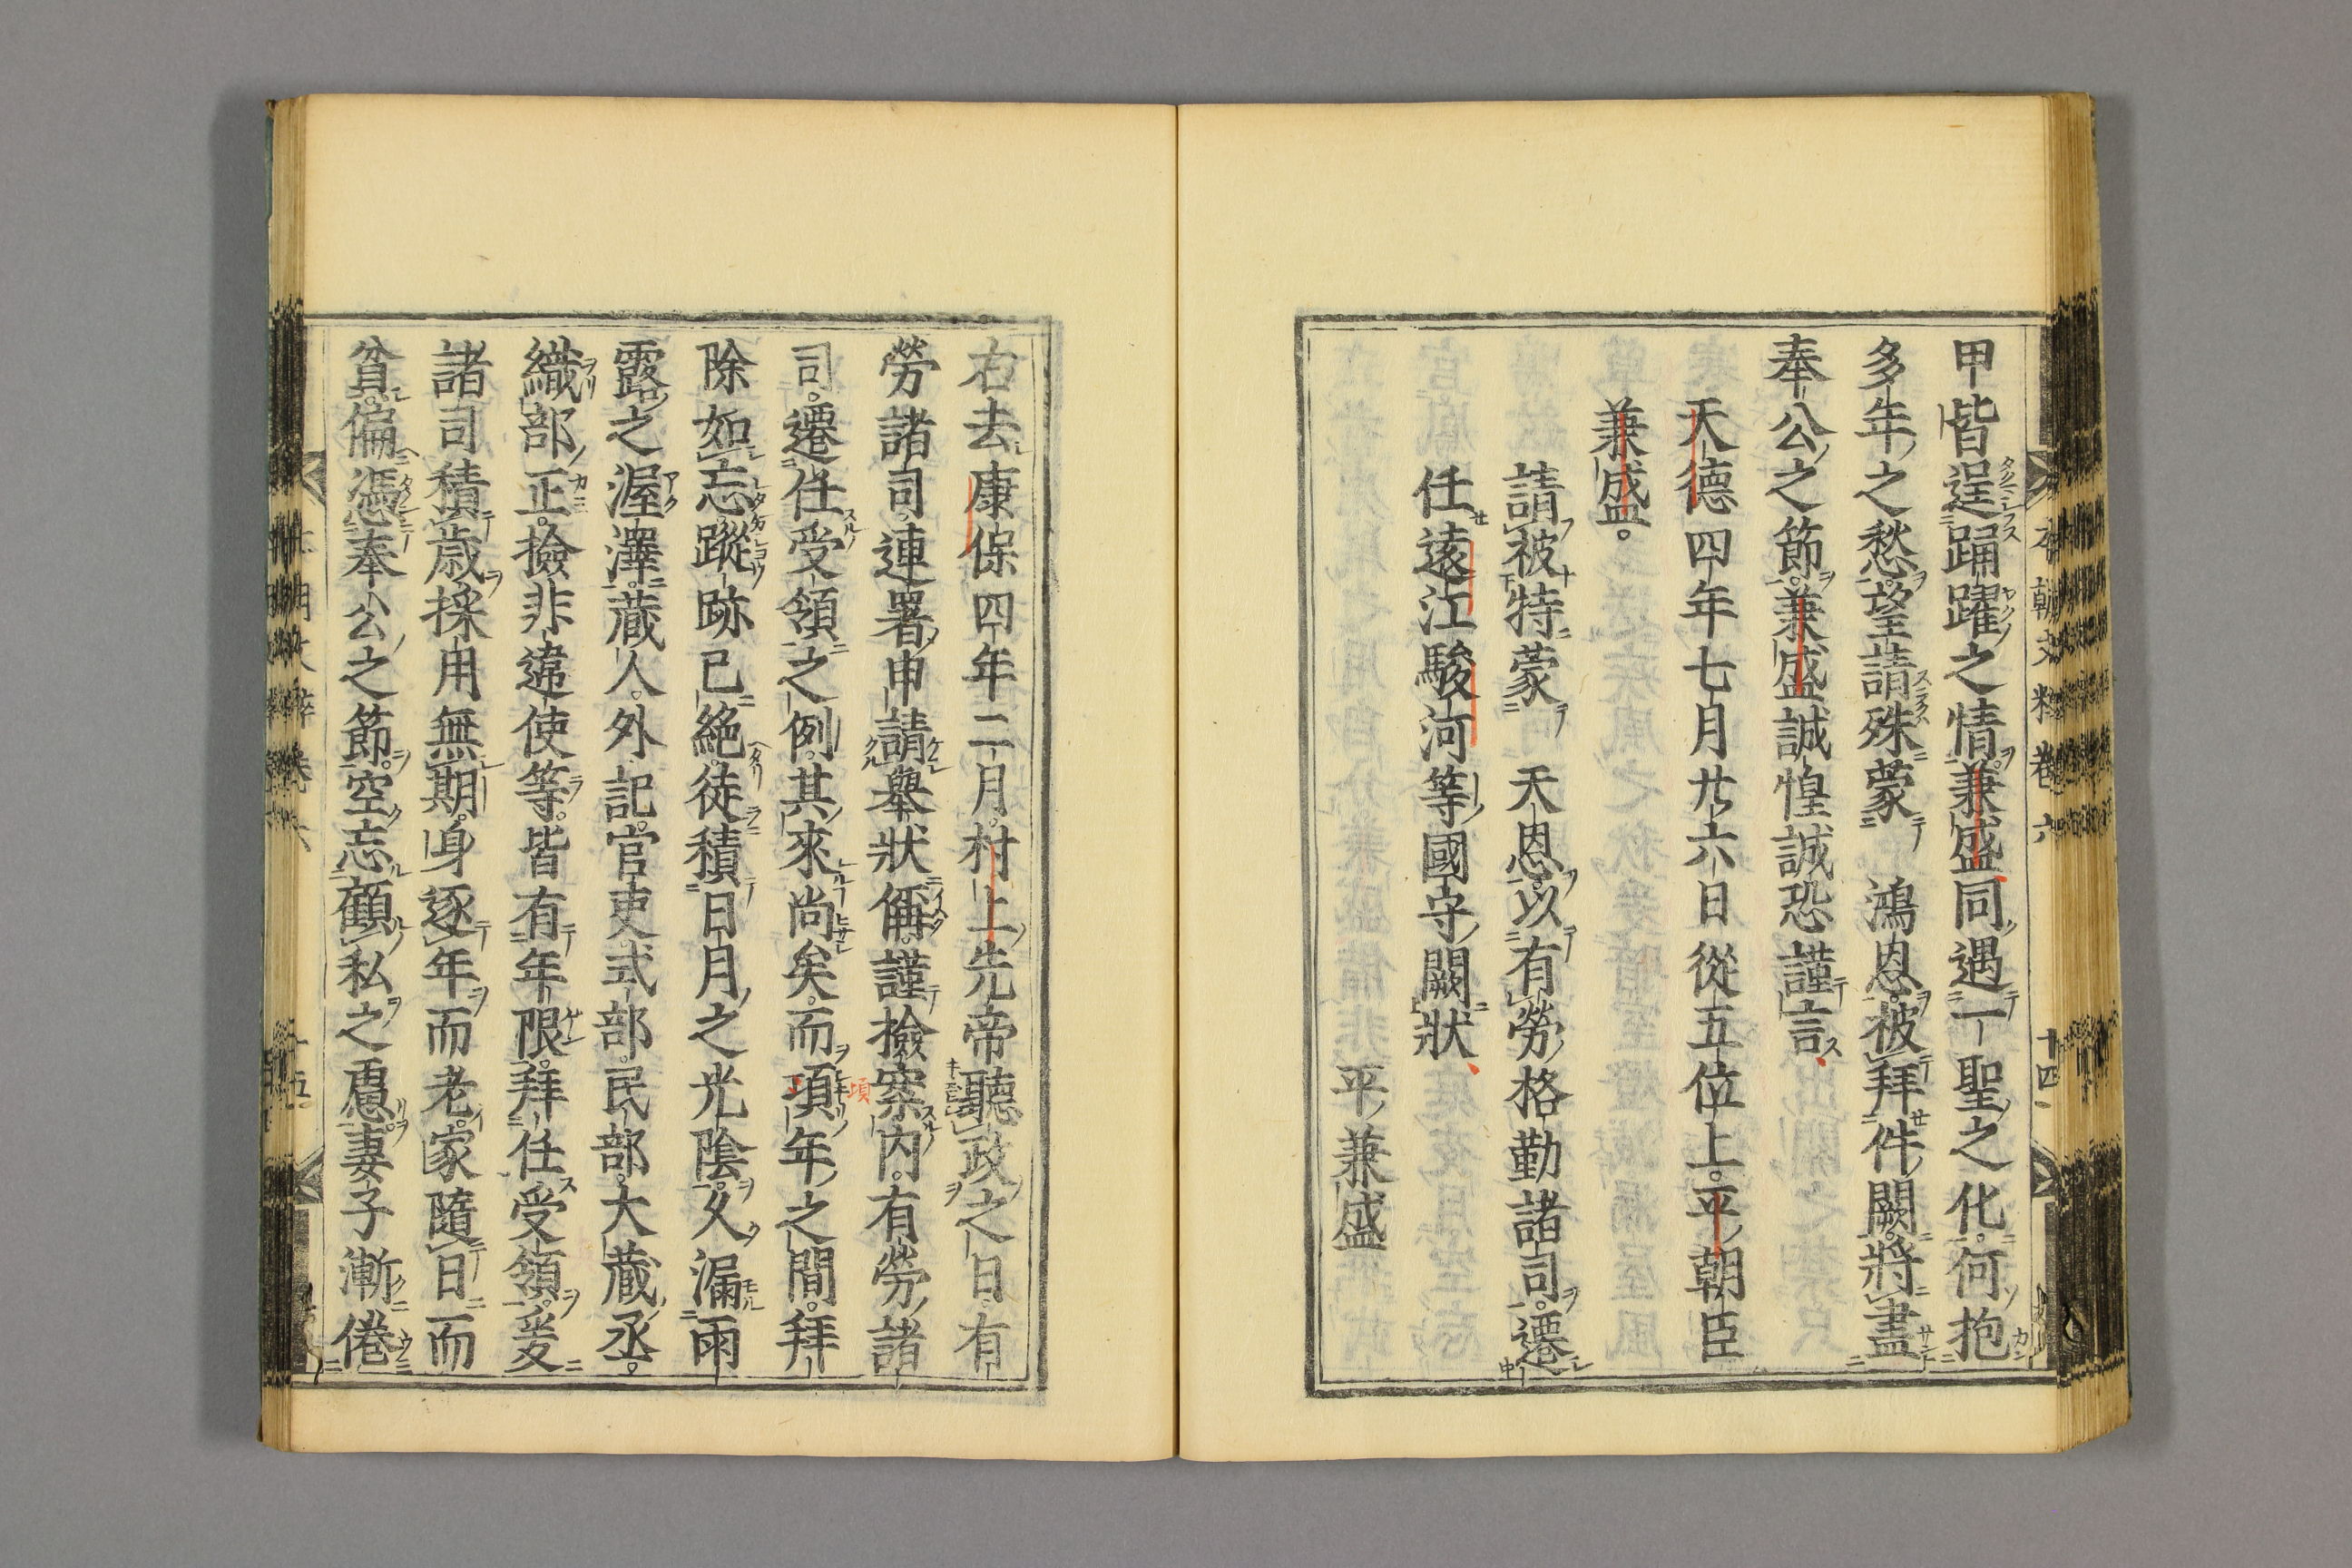 甲皆逞踊躍之情。兼盛同遇一聖之化。何抱
多年之愁。望請殊蒙　鴻恩。被拜件闕。將盡
奉公之節。兼盛誠惶誠恐謹言
天德四年七月廿六日從五位上。平朝臣
兼盛。
請被特蒙　天恩。以有勞格勤諸司。遷
任遠江駿河等國守闕狀
平兼盛
右去康保四年二月。村上先帝聽政之日。有
勞諸司。連署申請舉狀偁。謹撿案内。有勞諸
司。遷任受領之例。其來尚矣。而項年之間。拜
除如忘。蹤跡已絕。徒積日月之光陰。久漏雨
露之渥澤。藏人。外記。官吏式部。民部。大藏丞。
織部正。撿非違使等。皆有年限。拜任受領。爰
諸司積歲。採用無期。身逐年而老。家隨日而
貧。偏憑奉公之節。空忘顧私之慮。妻子漸倦
頃
本朝文粹卷六
十四